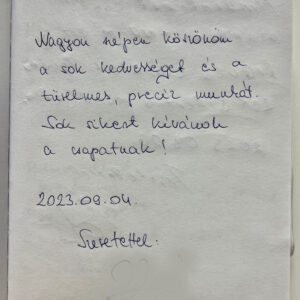 Nagyon szépen köszönöm
a sok kedvességet és a
türelmes, precíz munkát.
Sok sikert kívánok
a csapatnak!
2023.09.04.
Szeretettel: